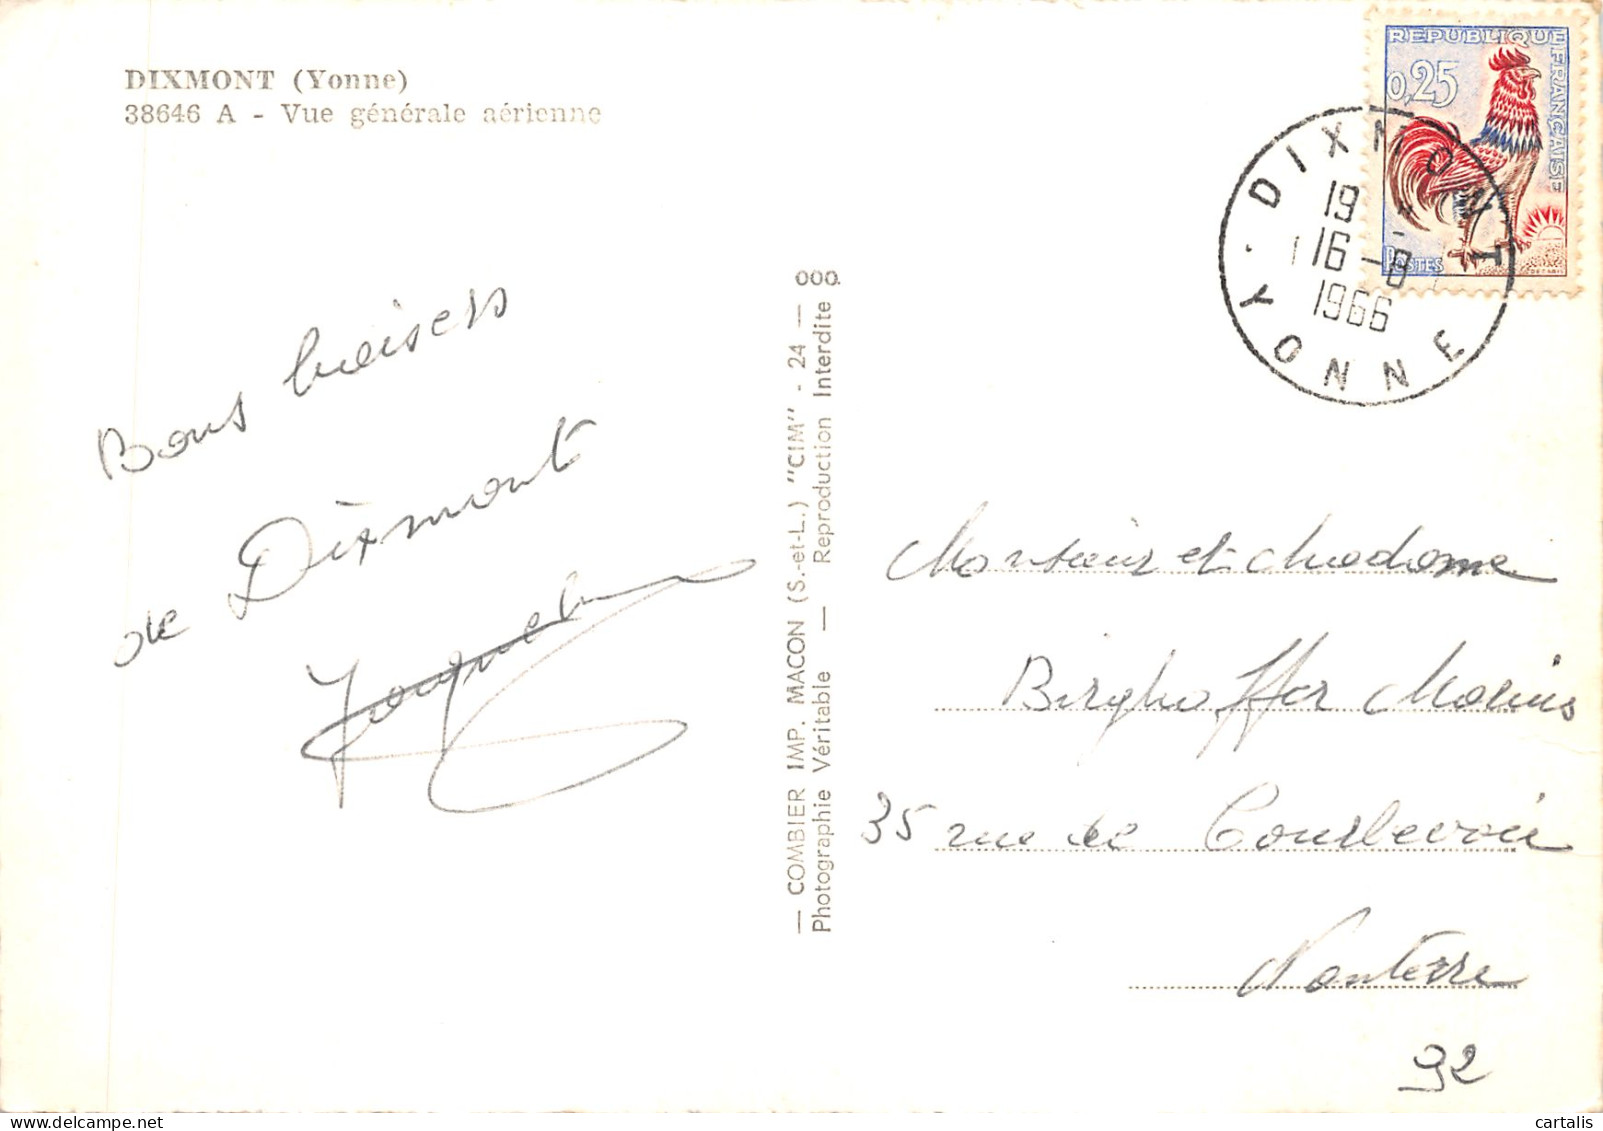 DIXMONT (Yonne)
38646 A - Vue générale aérienne
Bons baisers
de Dixmont
000
— COMBIER IMP. MACON (S.-et-L.) "CIM" - 24 —
Photographie Véritable — Reproduction Interdite
REPUBLIQUE FRANÇAISE
0,25
POSTES
DIXMONT
19
16 -8
1966
YONNE
Monsieur et Madame
Birghoffer Marius
35 rue de Courbevoie
Nanterre
92
cartalis
delcampe.net